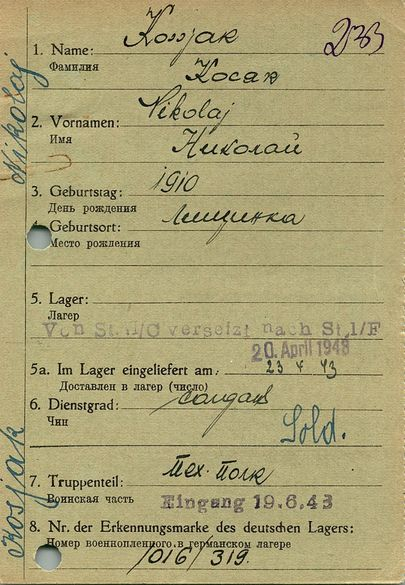 233
1. Name: Kosjak
Фамилия Косяк
2. Vornamen: Nikolaj
Имя Николай
3. Geburtstag: 1910
День рождения
4. Geburtsort: Лищинка
Место рождения
5. Lager:
Лагер
Von St.I/C versetzt nach St.I/F
20. April 1943
5a. Im Lager eingeliefert am: 23 V 43
Доставлен в лагер (число)
6. Dienstgrad: солдат
Чин
Sold.
7. Truppenteil: Тех. Полк
Воинская часть
Eingang 19.6.43
8. Nr. der Erkennungsmarke des deutschen Lagers:
Номер военнопленного в германском лагере
/016/319.
Kosjak Nikolaj